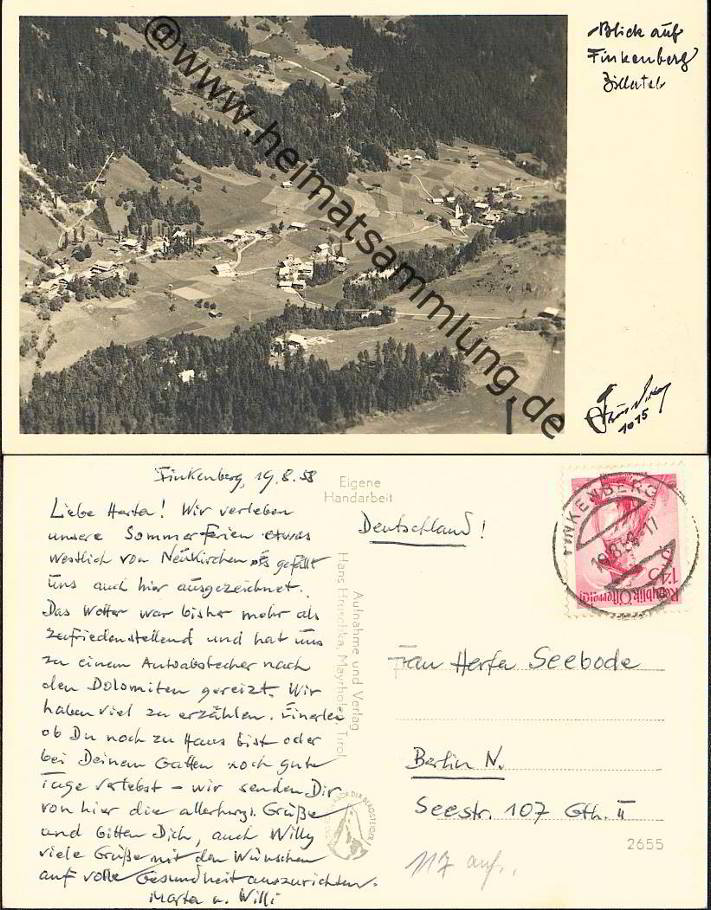 Blick auf
Finkenberg
Zillertal
@www.heimatsammlung.de
1015
Finkenberg, 19.8.58
Liebe Herta! Wir verleben
unsere Sommerferien etwas
westlich von Neukirchen. Es gefällt
uns auch hier ausgezeichnet.
Das Wetter war bisher mehr als
zufriedenstellend und hat uns
zu einem Autoabstecher nach
den Dolomiten gereizt. Wir
haben viel zu erzählen. Einerlei
ob Du noch zu Haus bist oder
bei Deinem Gatten noch gute
Tage verlebst – wir senden Dir
von hier die allerherzl. Grüße
und bitten Dich, auch Willy
viele Grüße mit den Wünschen
auf volle Gesundheit auszurichten.
Marta u. Willi
Eigene
Handarbeit
Aufnahme und Verlag
Hans Hruschka, Mayrhofen, Tirol
FINKENBERG
19.8.58-17
Republik Österreich
1.45
Deutschland!
Frau Herta Seebode
Berlin N.
Seestr. 107 Gth. II
2655
117 auf.